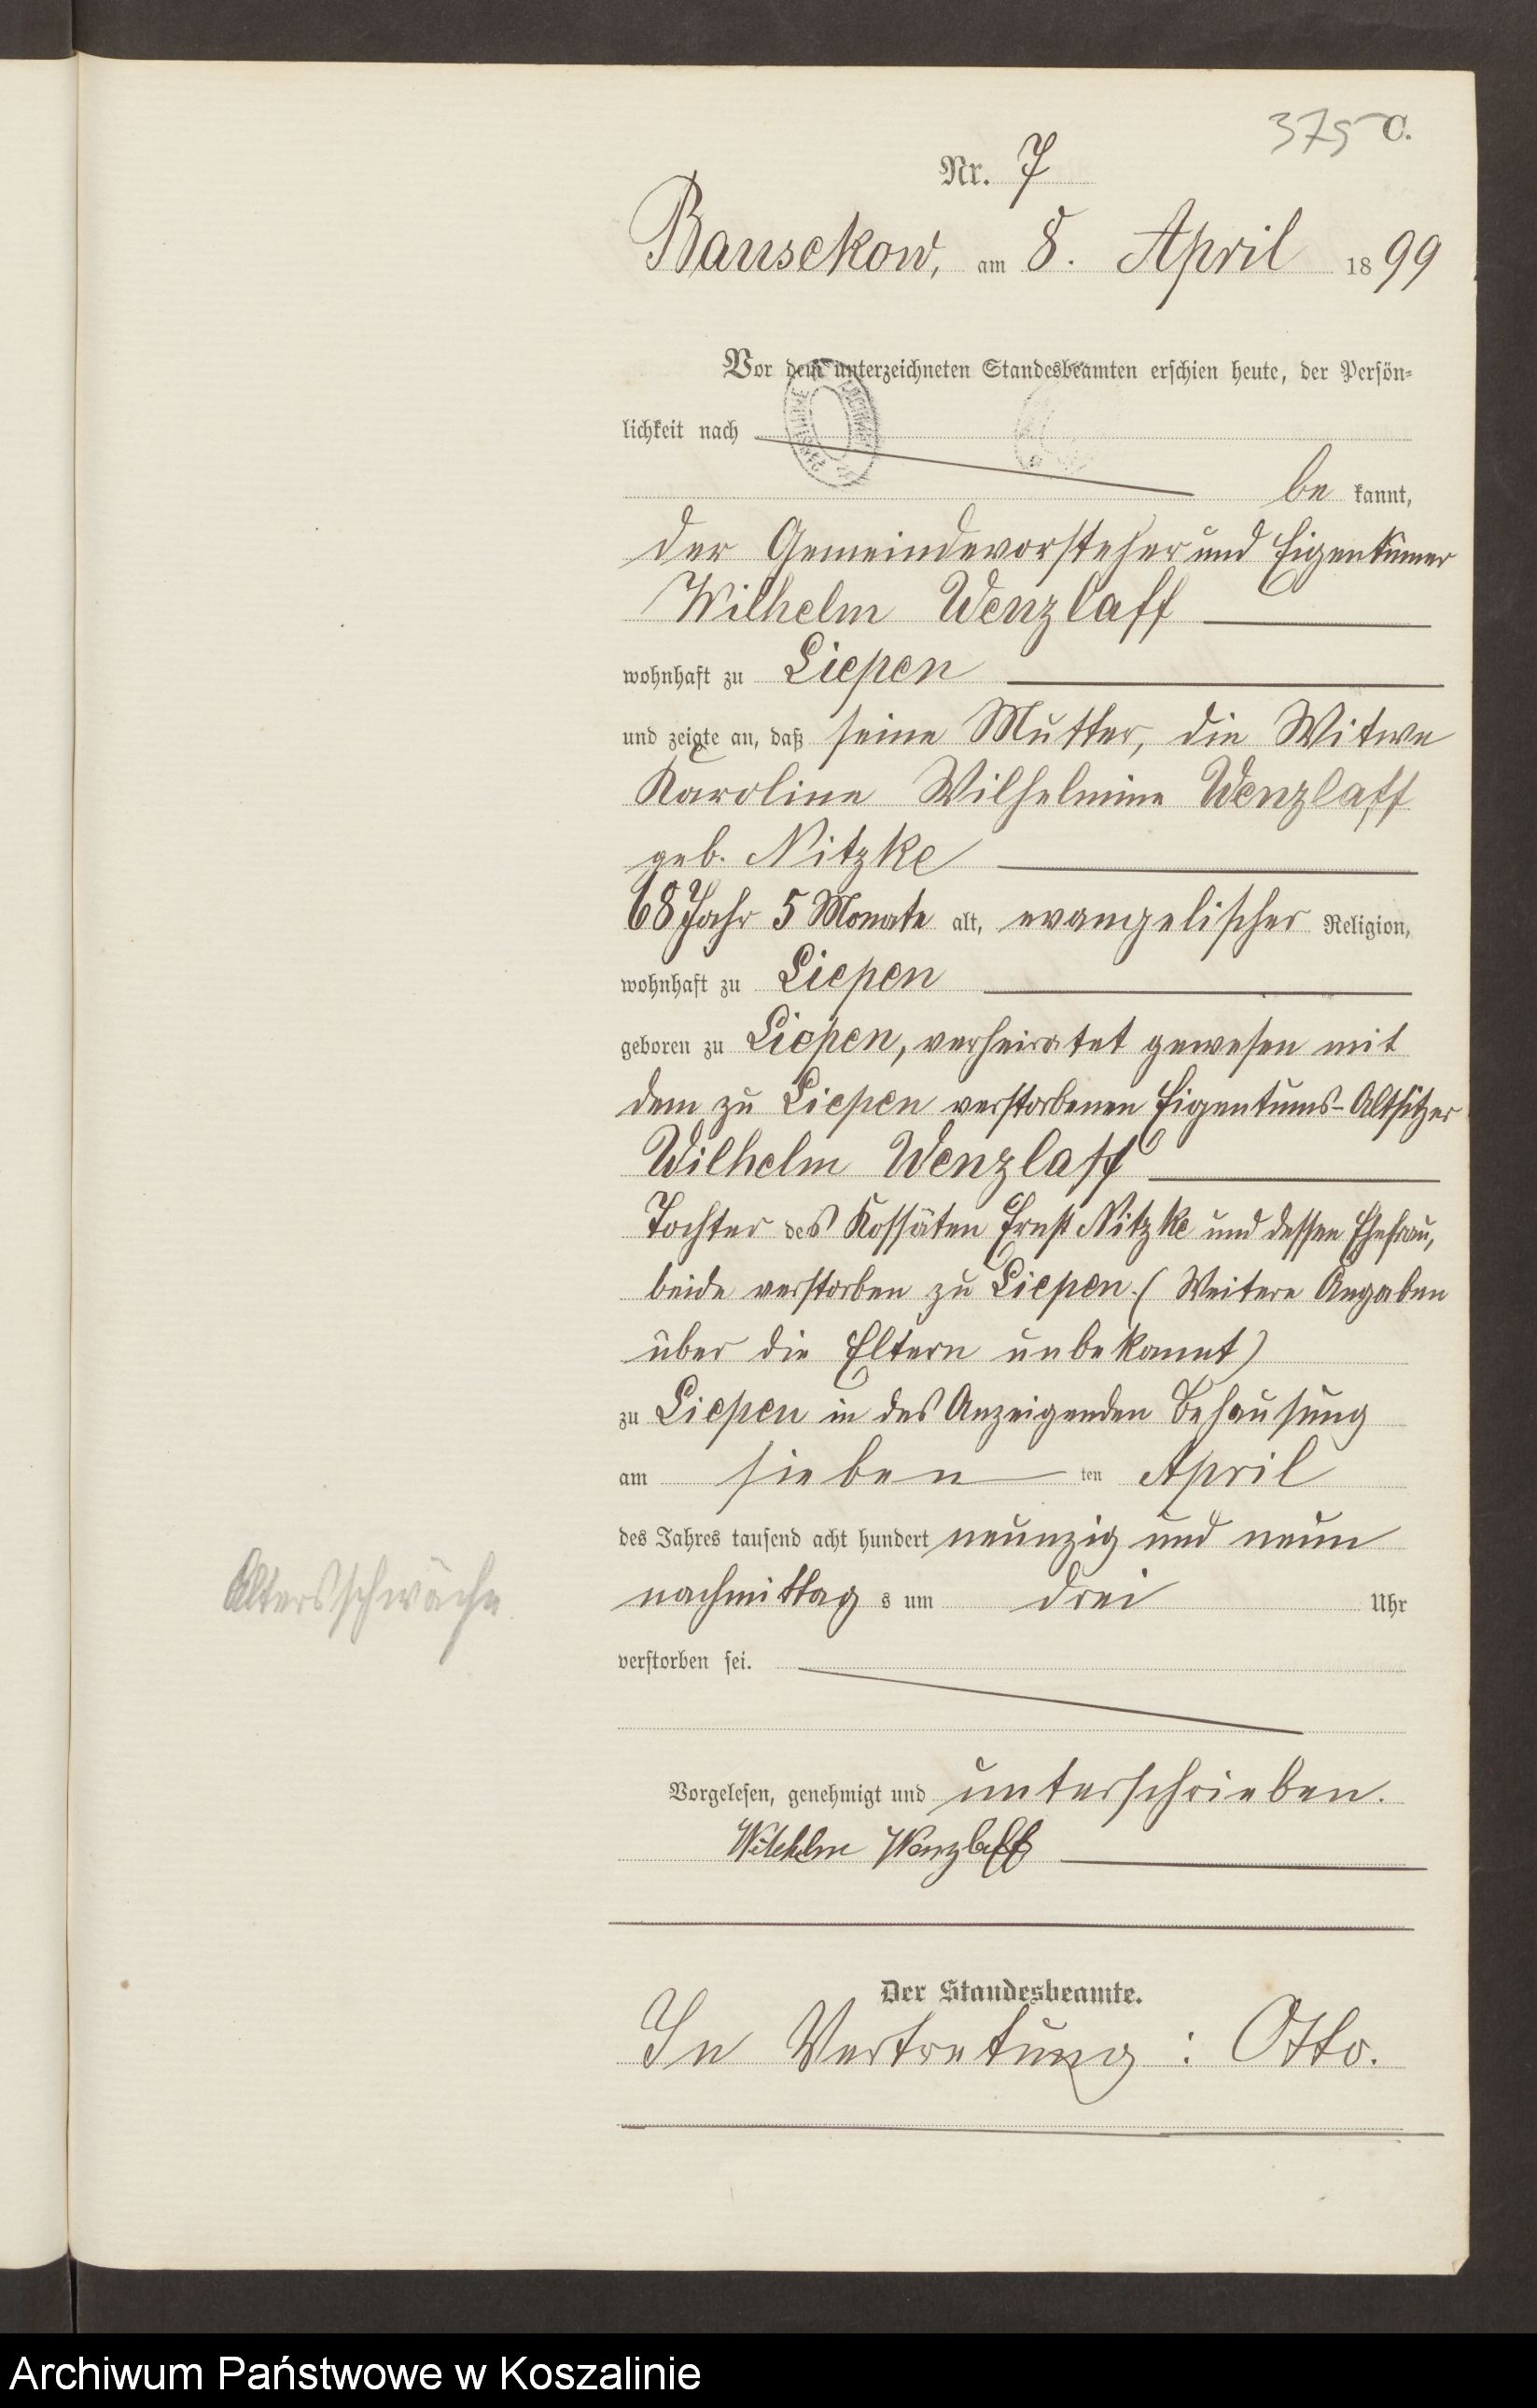 375 C.
Nr. 7
Bansekow, am 8. April 1899
Vor dem unterzeichneten Standesbeamten erschien heute, der Persön-
lichkeit nach
be kannt,
der Gemeindevorsteher und Eigentümer
Wilhelm Wenzlaff
wohnhaft zu Liepen
und zeigte an, daß seine Mutter, die Witwe
Karoline Wilhelmine Wenzlaff
geb. Nitzke
68 Jahr 5 Monate alt, evangelischer Religion,
wohnhaft zu Liepen
geboren zu Liepen, verheiratet gewesen mit
dem zu Liepen verstorbenen Eigentums-Altsitzer
Wilhelm Wenzlaff
Tochter des Kossäten Ernst Nitzke und dessen Ehefrau,
beide verstorben zu Liepen. (Weitere Angaben
über die Eltern unbekannt)
zu Liepen in des Anzeigenden Behausung
am sieben ten April
des Jahres tausend acht hundert neunzig und neun
Altersschwäche
nachmittag s um drei Uhr
verstorben sei.
Vorgelesen, genehmigt und unterschrieben.
Wilhelm Wenzlaff
Der Standesbeamte.
In Vertretung: Otto.
Archiwum Państwowe w Koszalinie